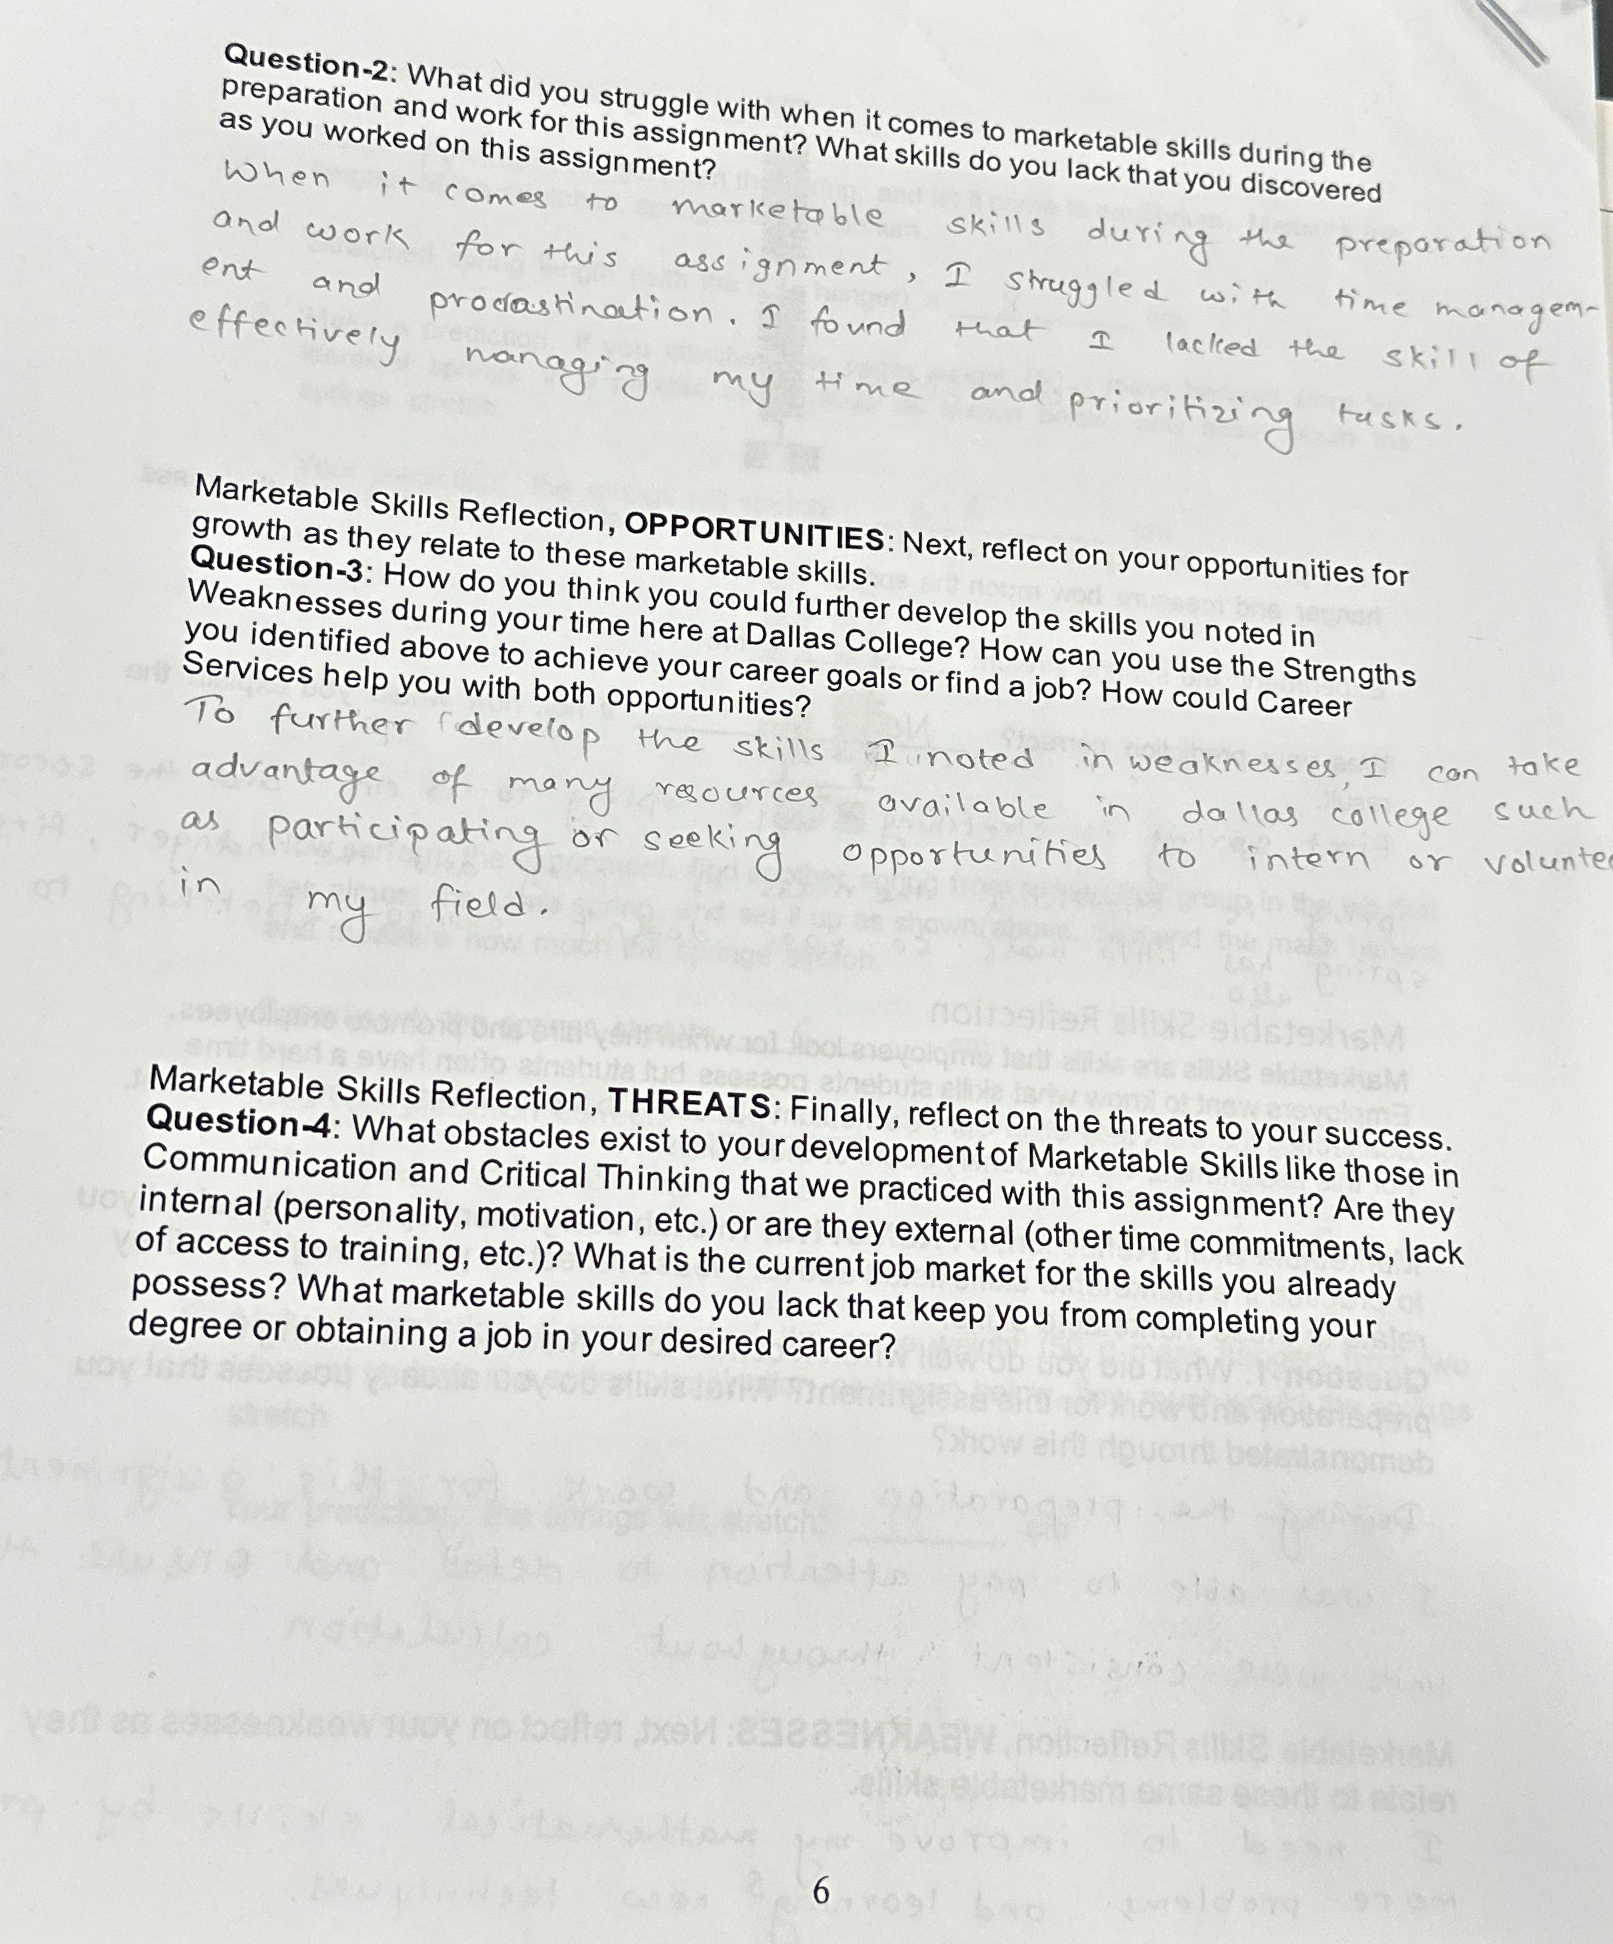 Question-2: What did you struggle with when it comes to marketable skills during the
preparation and work for this assignment? What skills do you lack that you discovered
as you worked on this assignment?
When it comes to marketable skills during the preparation
and work for this assignment, I struggled with time managem-
ent and procrastination. I found that I lacked the skill of
effectively managing my time and prioritizing tasks.
Marketable Skills Reflection, OPPORTUNITIES: Next, reflect on your opportunities for
growth as they relate to these marketable skills.
Question-3: How do you think you could further develop the skills you noted in
Weaknesses during your time here at Dallas College? How can you use the Strengths
you identified above to achieve your career goals or find a job? How could Career
Services help you with both opportunities?
To further develop the skills I noted in weaknesses, I can take
advantage of many resources available in dallas college such
as participating or seeking opportunities to intern or voluntee
in my field.
Marketable Skills Reflection, THREATS: Finally, reflect on the threats to your success.
Question-4: What obstacles exist to your development of Marketable Skills like those in
Communication and Critical Thinking that we practiced with this assignment? Are they
internal (personality, motivation, etc.) or are they external (other time commitments, lack
of access to training, etc.)? What is the current job market for the skills you already
possess? What marketable skills do you lack that keep you from completing your
degree or obtaining a job in your desired career?
6